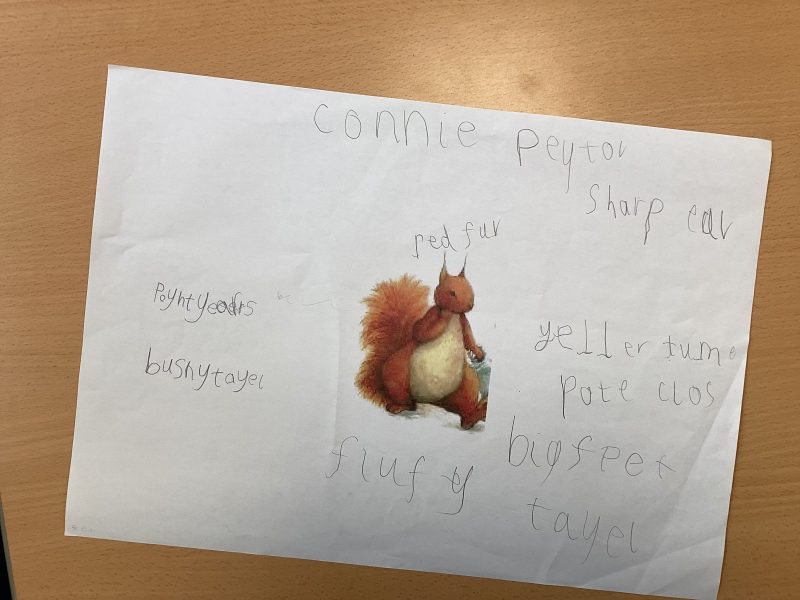 connie peytor
sharp ear
red fur
poyhtyeears
bushytayel
yeller tume
pote clos
bigfeet
flufy
tayel